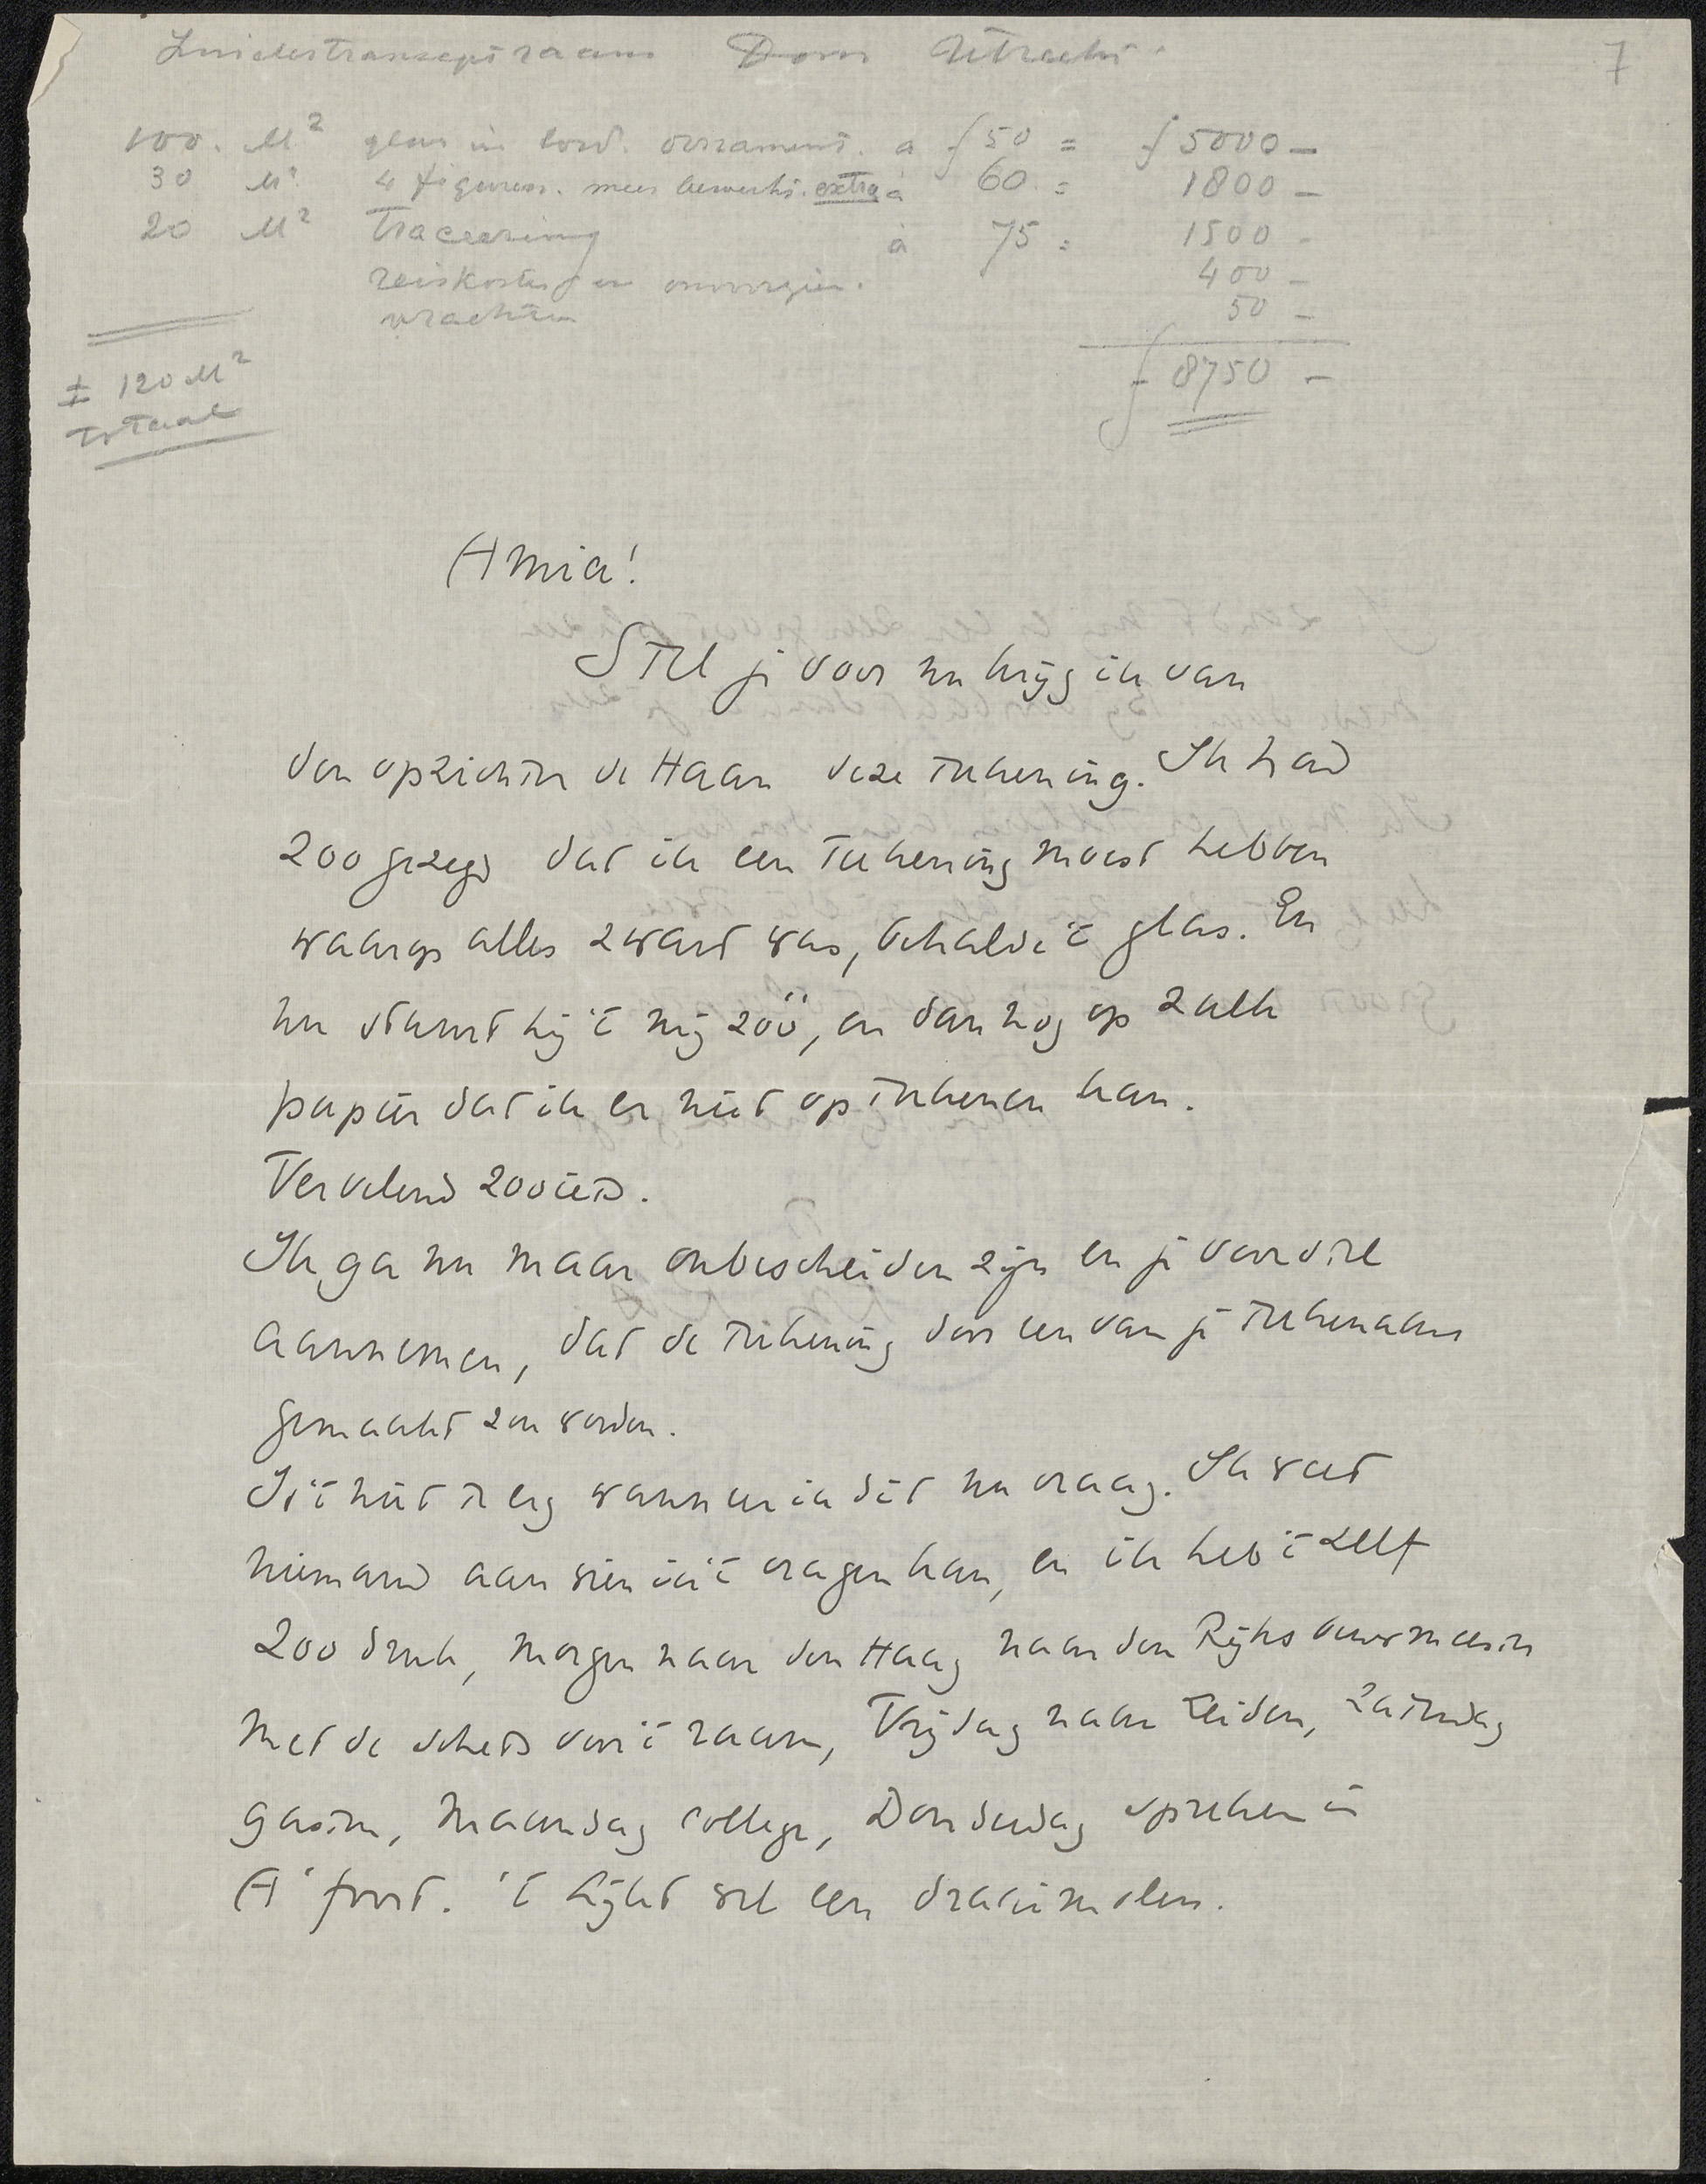 Zuidertranseptraam Dom Utrecht. 7
100. M² glas in lood. ornament. a f 50 = f 5000 —
30 M² 4 figuren. meer bewerkt. extra à 60 = 1800 —
20 M² Traceering à 75 = 1500 -
reiskosten en onvoorzien. 400 —
vrachten 50 —
f 8750 —
± 120 M²
totaal
Amia!
Stel je voor nu krijg ik van
den opzichter de Haan deze teekening. Ik had
zoo gezegd dat ik een teekening moest hebben
waarop alles zwart was, behalve 't glas. En
nu stuurt hij 't mij zóó, en dan nog op zulk
papier dat ik er niet op teekenen kan.
Vervelend zooiets.
Ik ga nu maar onbescheiden zijn en je voorstel
aannemen, dat de teekening door een van je teekenaars
gemaakt zou worden.
Is 't niet te erg wanneer ik dit nu vraag. Ik weet
niemand aan wien ik 't vragen kan, en ik heb 't zelf
zoo druk, morgen naar den Haag naar den Rijksbouwmeester
met de schets voor 't raam, Vrijdag naar Leiden, Zaterdag
gasten, Maandag college, Donderdag spreken in
A'foort. 't Lijkt wel een draaimolen.